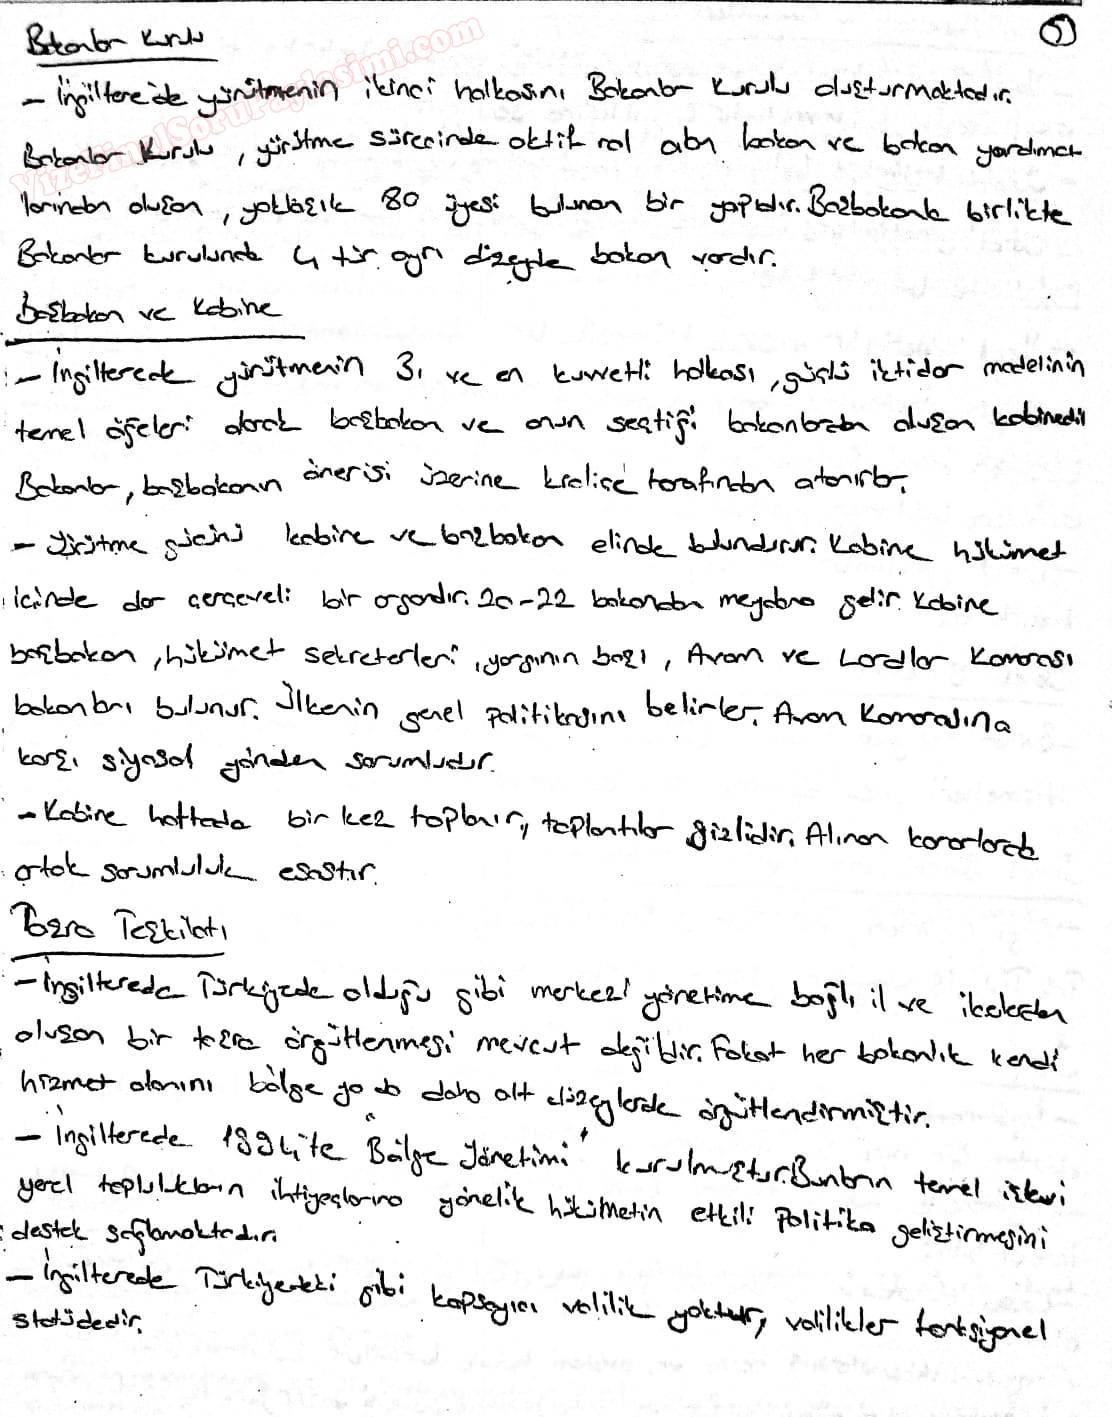 5
Bakanlar Kurulu
- İngiltere'de yürütmenin ikinci halkasını Bakanlar Kurulu oluşturmaktadır.
Bakanlar Kurulu, yürütme sürecinde aktif rol alan bakan ve bakan yardımcı
larından oluşan, yaklaşık 80 üyesi bulunan bir yapıdır. Başbakanla birlikte
Bakanlar kurulunda 4 tür ayrı düzeyde bakan vardır.
Başbakan ve Kabine
- İngilterede yürütmenin 3. ve en kuvvetli halkası, güçlü iktidar modelinin
temel öğeleri olarak başbakan ve onun seçtiği bakanlardan oluşan kabinedir
Bakanlar, başbakanın önerisi üzerine kraliçe tarafından atanırlar.
- Yürütme gücünü kabine ve başbakan elinde bulundurur. Kabine hükümet
içinde dar çerçeveli bir organdır. 20-22 bakandan meydana gelir. Kabine
başbakan, hükümet sekreterleri, yargının başı, Avam ve Lordlar Kamarası
bakanları bulunur. Ülkenin genel politikasını belirler. Avam Kamarasına
karşı siyasal yönden sorumludur.
- Kabine haftada bir kez toplanır, toplantılar gizlidir. Alınan kararlarda
ortak sorumluluk esastır.
Taşra Teşkilatı
- İngilterede Türkiyede olduğu gibi merkezi yönetime bağlı il ve ilçelerden
oluşan bir taşra örgütlenmesi mevcut değildir. Fakat her bakanlık kendi
hizmet alanını bölge ya da daha alt düzeylerde örgütlendirmiştir.
- İngilterede 1994'te "Bölge Yönetimi" kurulmuştur. Bunların temel işlevi
yerel toplulukların ihtiyaçlarına yönelik hükümetin etkili politika geliştirmesini
destek sağlamaktadır.
- İngilterede Türkiyedeki gibi kapsayıcı valilik yoktur, valilikler fonksiyonel
statüdedir.
VizeFinalSoruPaylasimi.com